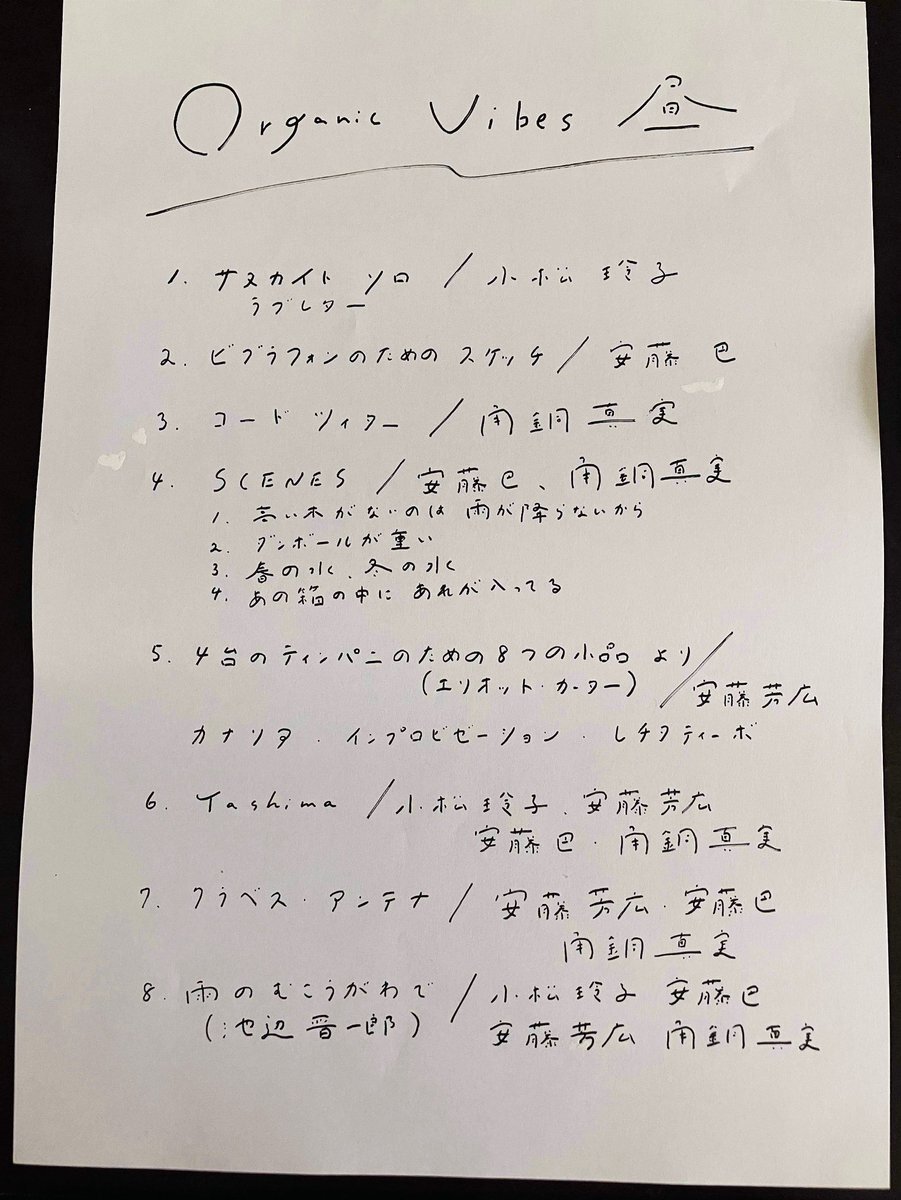 Organic Vibes 昼
1. サヌカイト ソロ / 小松 玲子
ラブレター
2. ビブラフォンのための スケッチ / 安藤 巴
3. コード ツィター / 南銅 真実
4. SCENES / 安藤巴、南銅真実
1. 高い木がないのは 雨が降らないから
2. ダンボールが重い
3. 春の水、冬の水
4. あの箱の中に あれが入ってる
5. 4台のティンパニのための8つの小品 より /
(エリオット・カーター) 安藤芳広
カナリア ・ インプロビゼーション ・ レチタティーボ
6. Yashima / 小松玲子、安藤芳広
安藤巴・南銅真実
7. クラベス・アンテナ / 安藤芳広・安藤巴
南銅真実
8. 雨のむこうがわで / 小松玲子 安藤巴
(池辺晋一郎) 安藤芳広 南銅真実